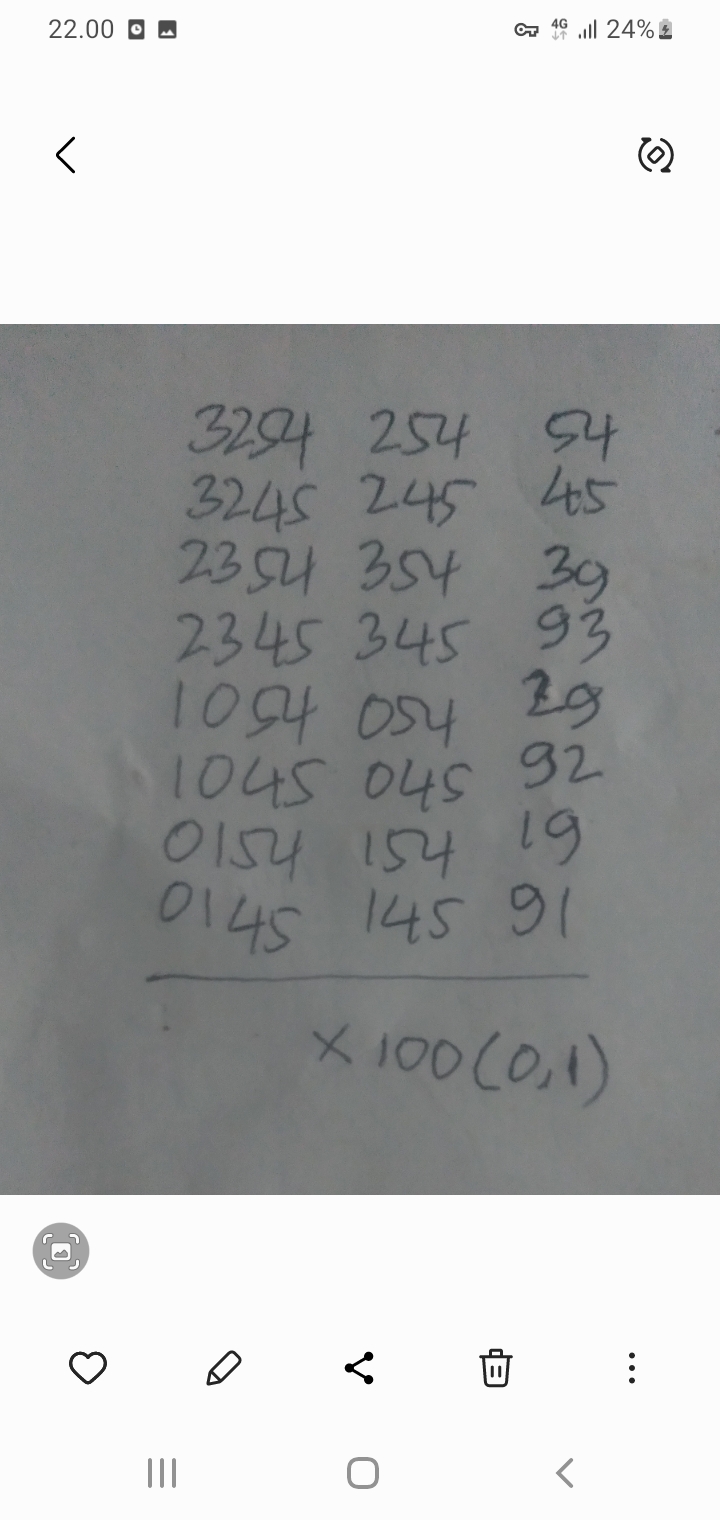 22.00 4G 24%
3254 254 54
3245 245 45
2354 354 39
2345 345 93
1054 054 29
1045 045 92
0154 154 19
0145 145 91
× 100 (0,1)